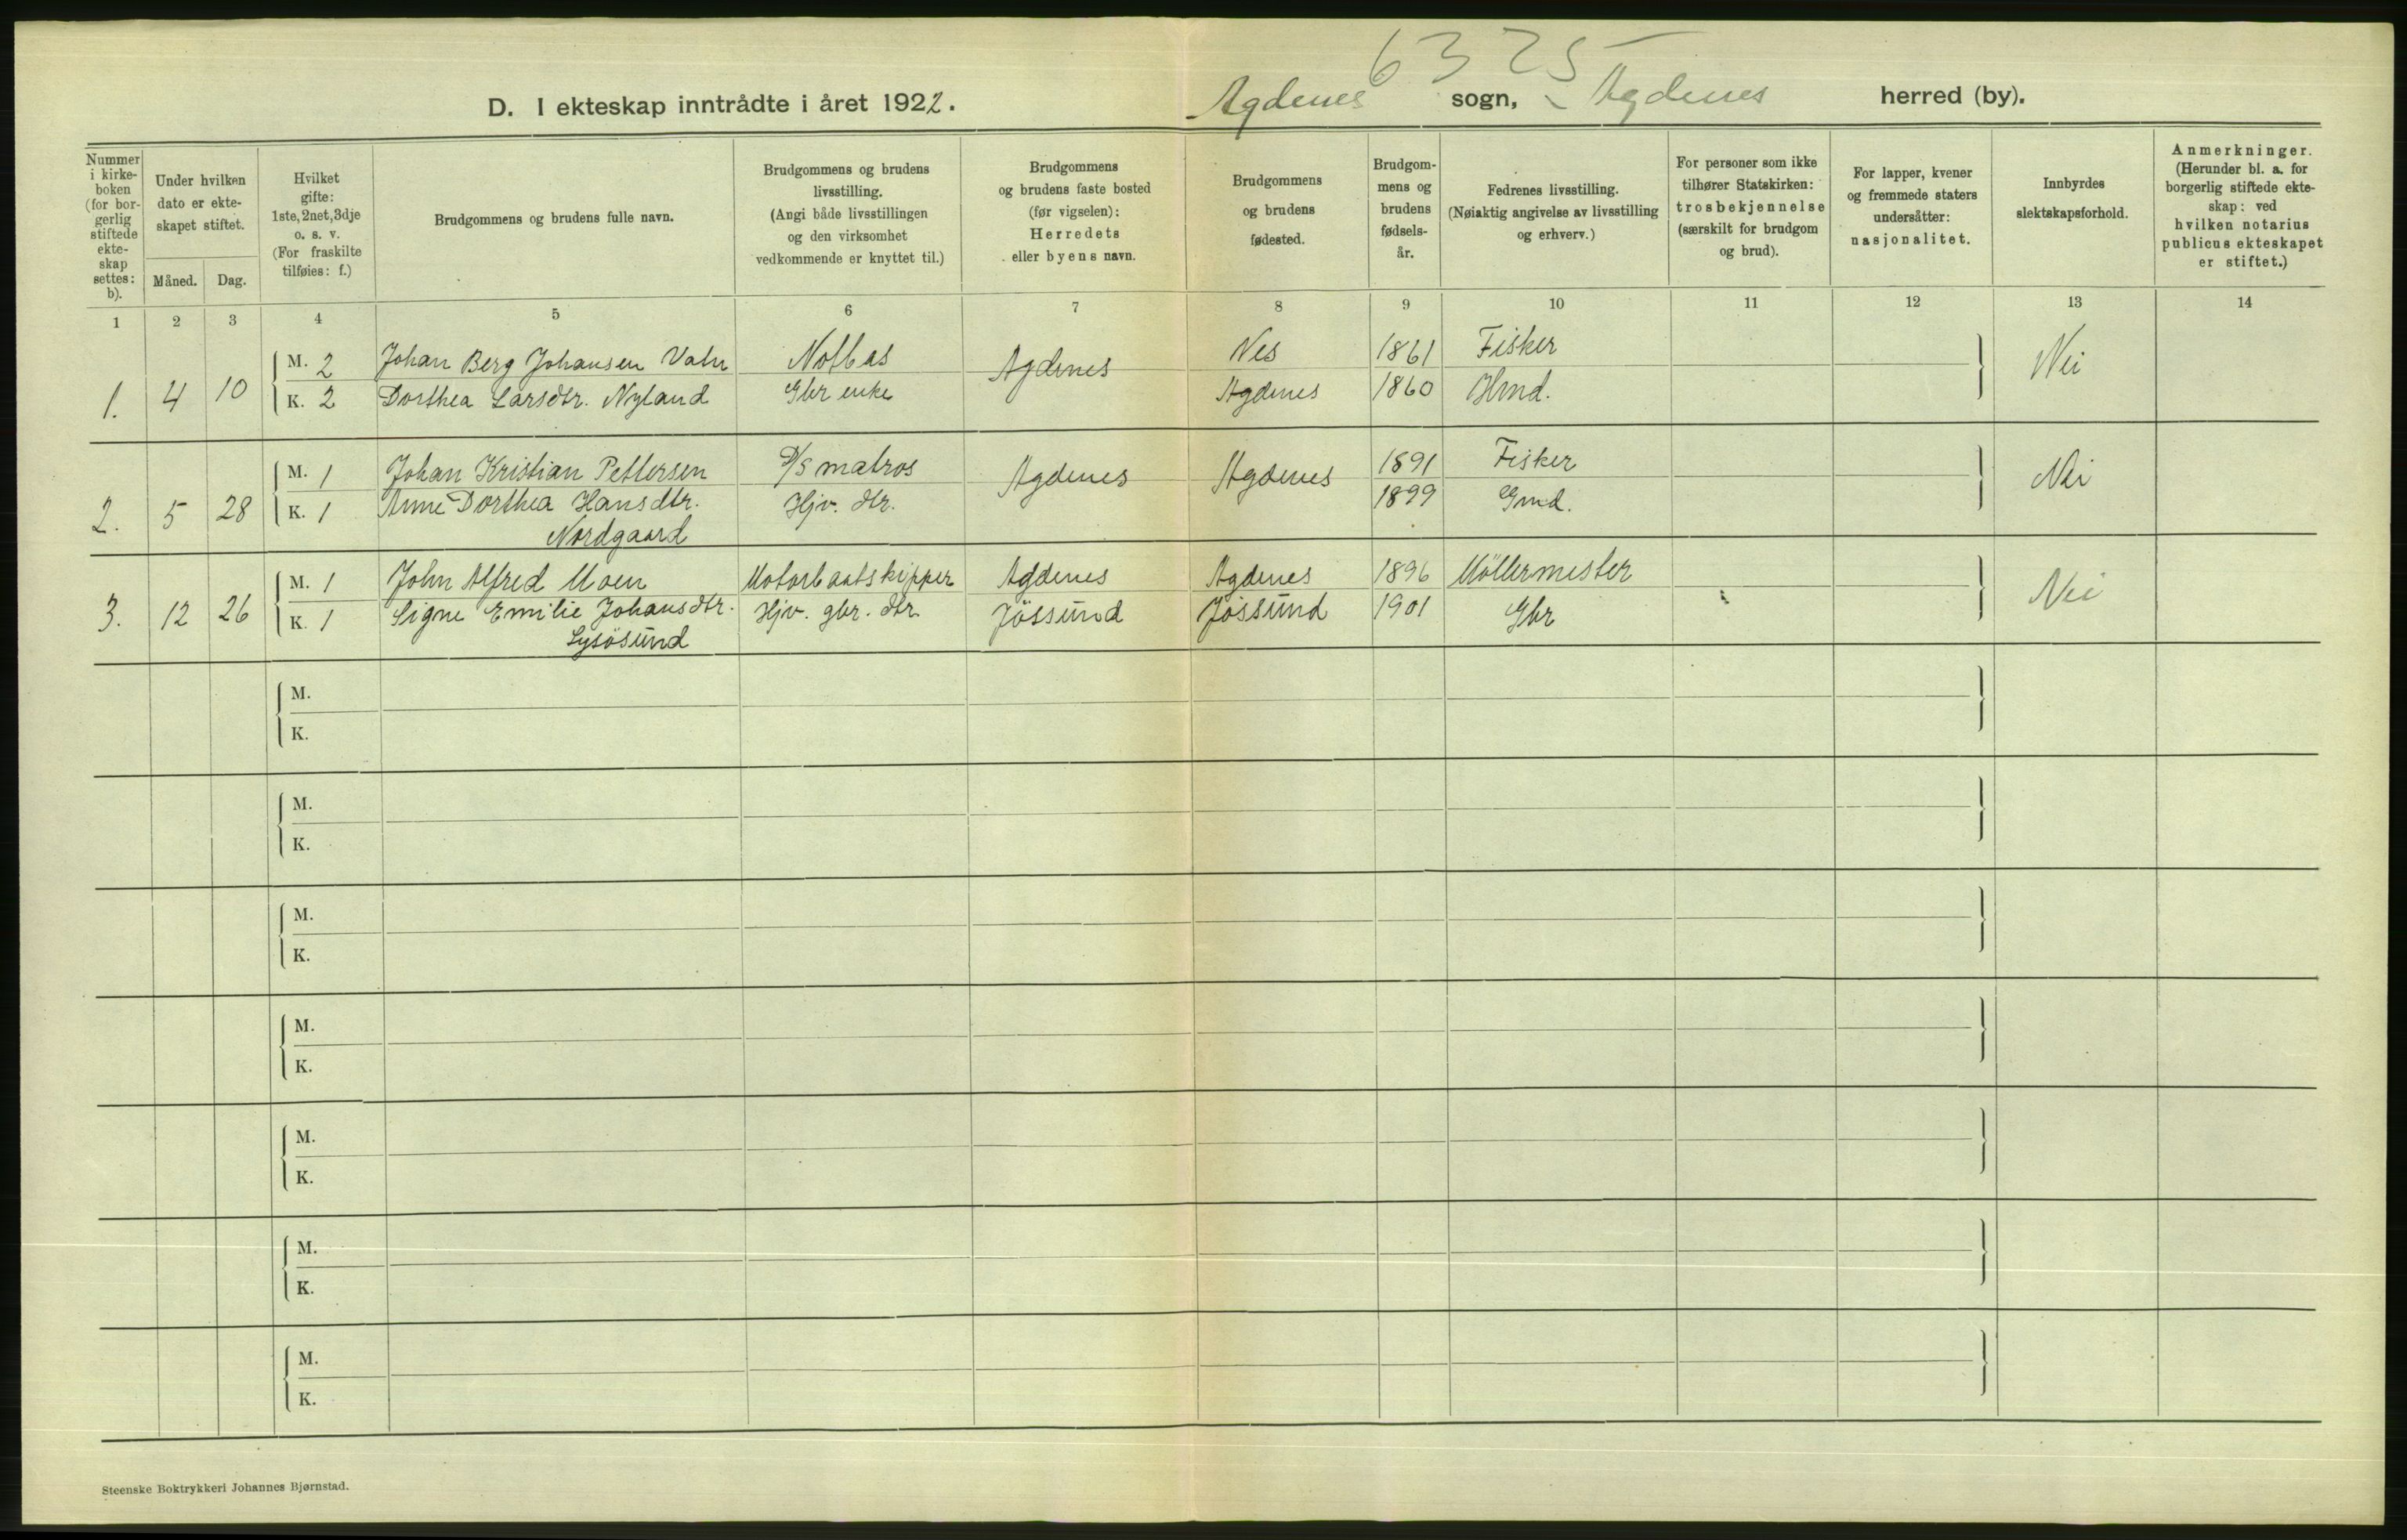 6325
D. I ekteskap inntrådte i året 1922.
Agdenes sogn, Agdenes herred (by).
Nummer i kirke-boken (for bor-gerlig stiftede ekte-skap settes: b).
Under hvilken dato er ekte-skapet stiftet.
Måned. Dag.
Hvilket gifte: 1ste, 2net, 3dje o. s. v. (For fraskilte tilføies: f.)
Brudgommens og brudens fulle navn.
Brudgommens og brudens livsstilling. (Angi både livsstillingen og den virksomhet vedkommende er knyttet til.)
Brudgommens og brudens faste bosted (før vigselen): Herredets eller byens navn.
Brudgommens og brudens fødested.
Brudgom-mens og brudens fødsels-år.
Fedrenes livsstilling. (Nøiaktig angivelse av livsstilling og erhverv.)
For personer som ikke tilhører Statskirken: trosbekjennelse (særskilt for brudgom og brud).
For lapper, kvener og fremmede staters undersåtter: nasjonalitet.
Innbyrdes slektskapsforhold.
Anmerkninger. (Herunder bl. a. for borgerlig stiftede ekte-skap: ved hvilken notarius publicus ekteskapet er stiftet.)
1 2 3 4 5 6 7 8 9 10 11 12 13 14
M. 2 Johan Berg Johansen Vatn Notbas Agdenes Nes 1861 Fisker Nei
1. 4 10 K. 2 Dorthea Larsdtr. Nyland Gbr enke Agdenes 1860 Hmd.
M. 1 Johan Kristian Pettersen D/S matros Agdenes Agdenes 1891 Fisker Nei
2. 5 28 K. 1 Anne Dorthea Hansdtr. Hjv. dtr. 1899 Gmd.
Nordgaard
M. 1 John Alfred Moen Motorbaatskipper Agdenes Agdenes 1896 Möllermester Nei
3. 12 26 K. 1 Signe Emilie Johansdtr. Hjv. gbr. dtr. Jössund Jössund 1901 Gbr
Lysösund
M.
K.
M.
K.
M.
K.
M.
K.
M.
K.
M.
K.
M.
K.
Steenske Boktrykkeri Johannes Bjørnstad.